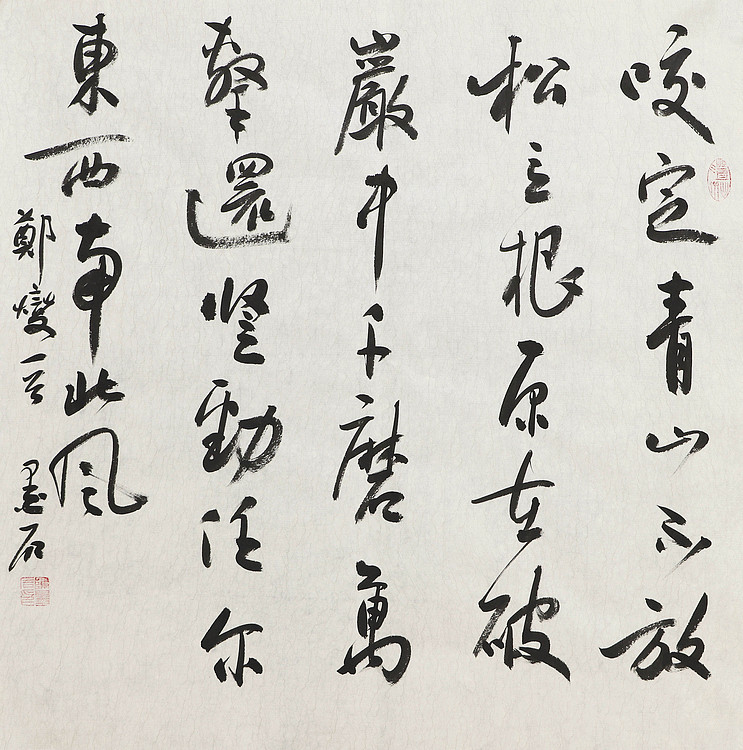 咬定青山不放
松立根原在破
嚴中千磨萬
擊還堅勁任尔
東西南北風
鄭燮一首 墨石